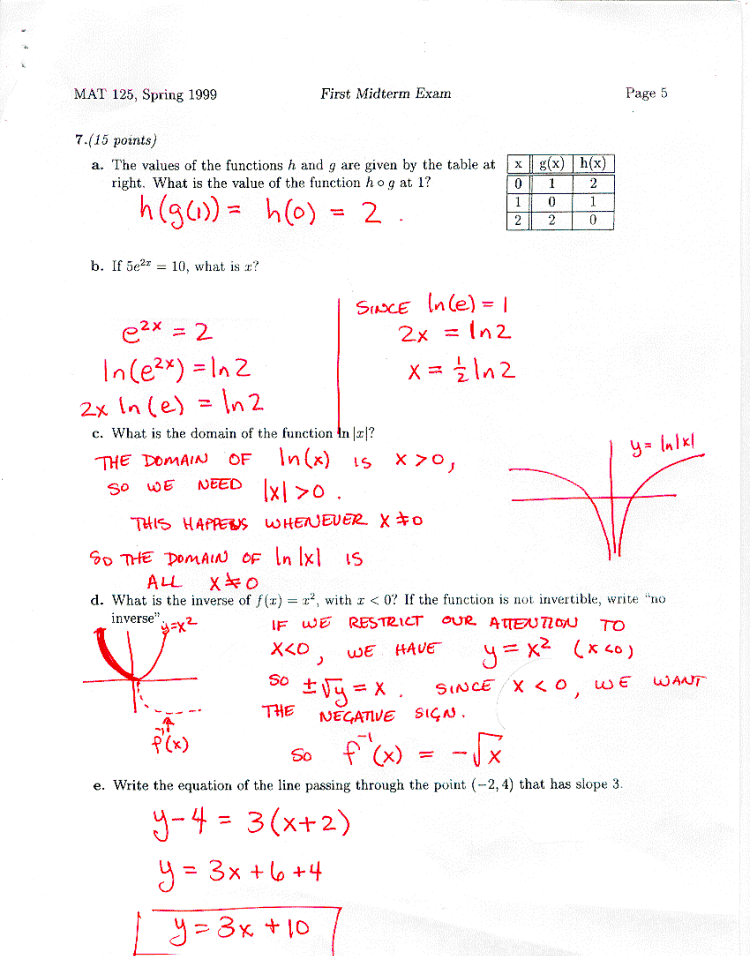 MAT 125, Spring 1999 First Midterm Exam Page 5
7.(15 points)
a. The values of the functions h and g are given by the table at
right. What is the value of the function h ∘ g at 1?
x g(x) h(x)
0 1 2
1 0 1
2 2 0
h(g(1)) = h(0) = 2 .
b. If 5e^{2x} = 10, what is x?
e^{2x} = 2
ln(e^{2x}) = ln 2
2x ln(e) = ln 2
SINCE ln(e) = 1
2x = ln 2
x = ½ ln 2
c. What is the domain of the function ln |x|?
THE DOMAIN OF ln(x) IS X > 0,
SO WE NEED |x| > 0 .
THIS HAPPENS WHENEVER X ≠ 0
SO THE DOMAIN OF ln |x| IS
ALL X ≠ 0
y = ln|x|
d. What is the inverse of f(x) = x², with x < 0? If the function is not invertible, write "no
inverse"
y=x²
f⁻¹(x)
IF WE RESTRICT OUR ATTENTION TO
X<0, WE HAVE y = x² (x<0)
SO ±√y = x . SINCE X < 0, WE WANT
THE NEGATIVE SIGN.
So f⁻¹(x) = -√x
e. Write the equation of the line passing through the point (−2, 4) that has slope 3.
y-4 = 3(x+2)
y = 3x + 6 + 4
y = 3x + 10